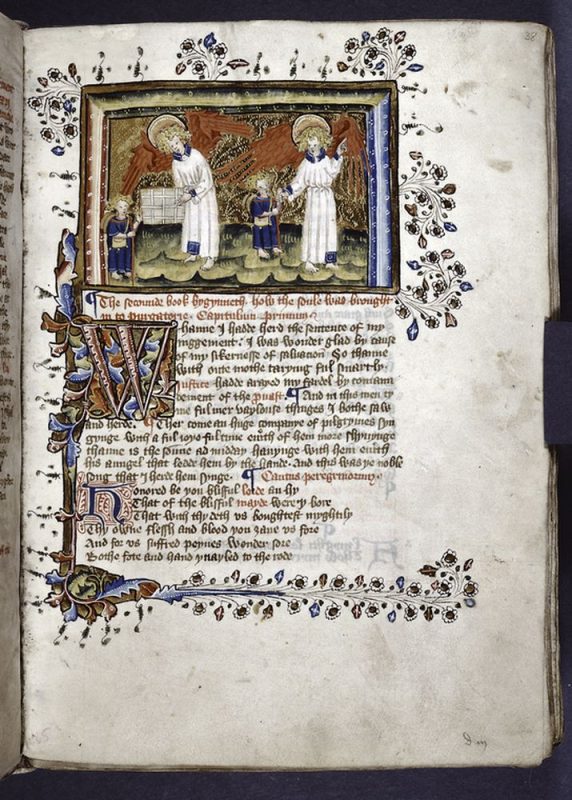 38
¶ The secunde book bygynneth how the soule was brought
in to purgatorie. Capitulum primum
Whanne I hadde herd the sentence of my
iuggement: I was wonder glad by cause
of my sikernesse of saluacion So thanne
with oute mothe taryyng ful smartly.
Iustice hadde arayed my fardel by comaun
dement of the ¶ And in this men ty
me ful mer vaylouse thinges I bothe saw
and herde. ¶ Ther come an huge companye of pilgrymes syn
gynge with a ful ioye ful tune euerich of hem more shynynge
thanne is the sonne ad midday hauynge with hem euerich
his aungel that ledde hem by the hande. And this was ye noble
song that I herde hem synge. ¶ Cantus peregrinorum.
Honored be you blisful lorde an hy
That of the blisful mayde were y bore
That with thy deth vs boughtest myghtily
Thy owne flessh and blood you zaue vs fore
And for vs suffred peynes wonder sore
Bothe fote and hand ynayled to the rode